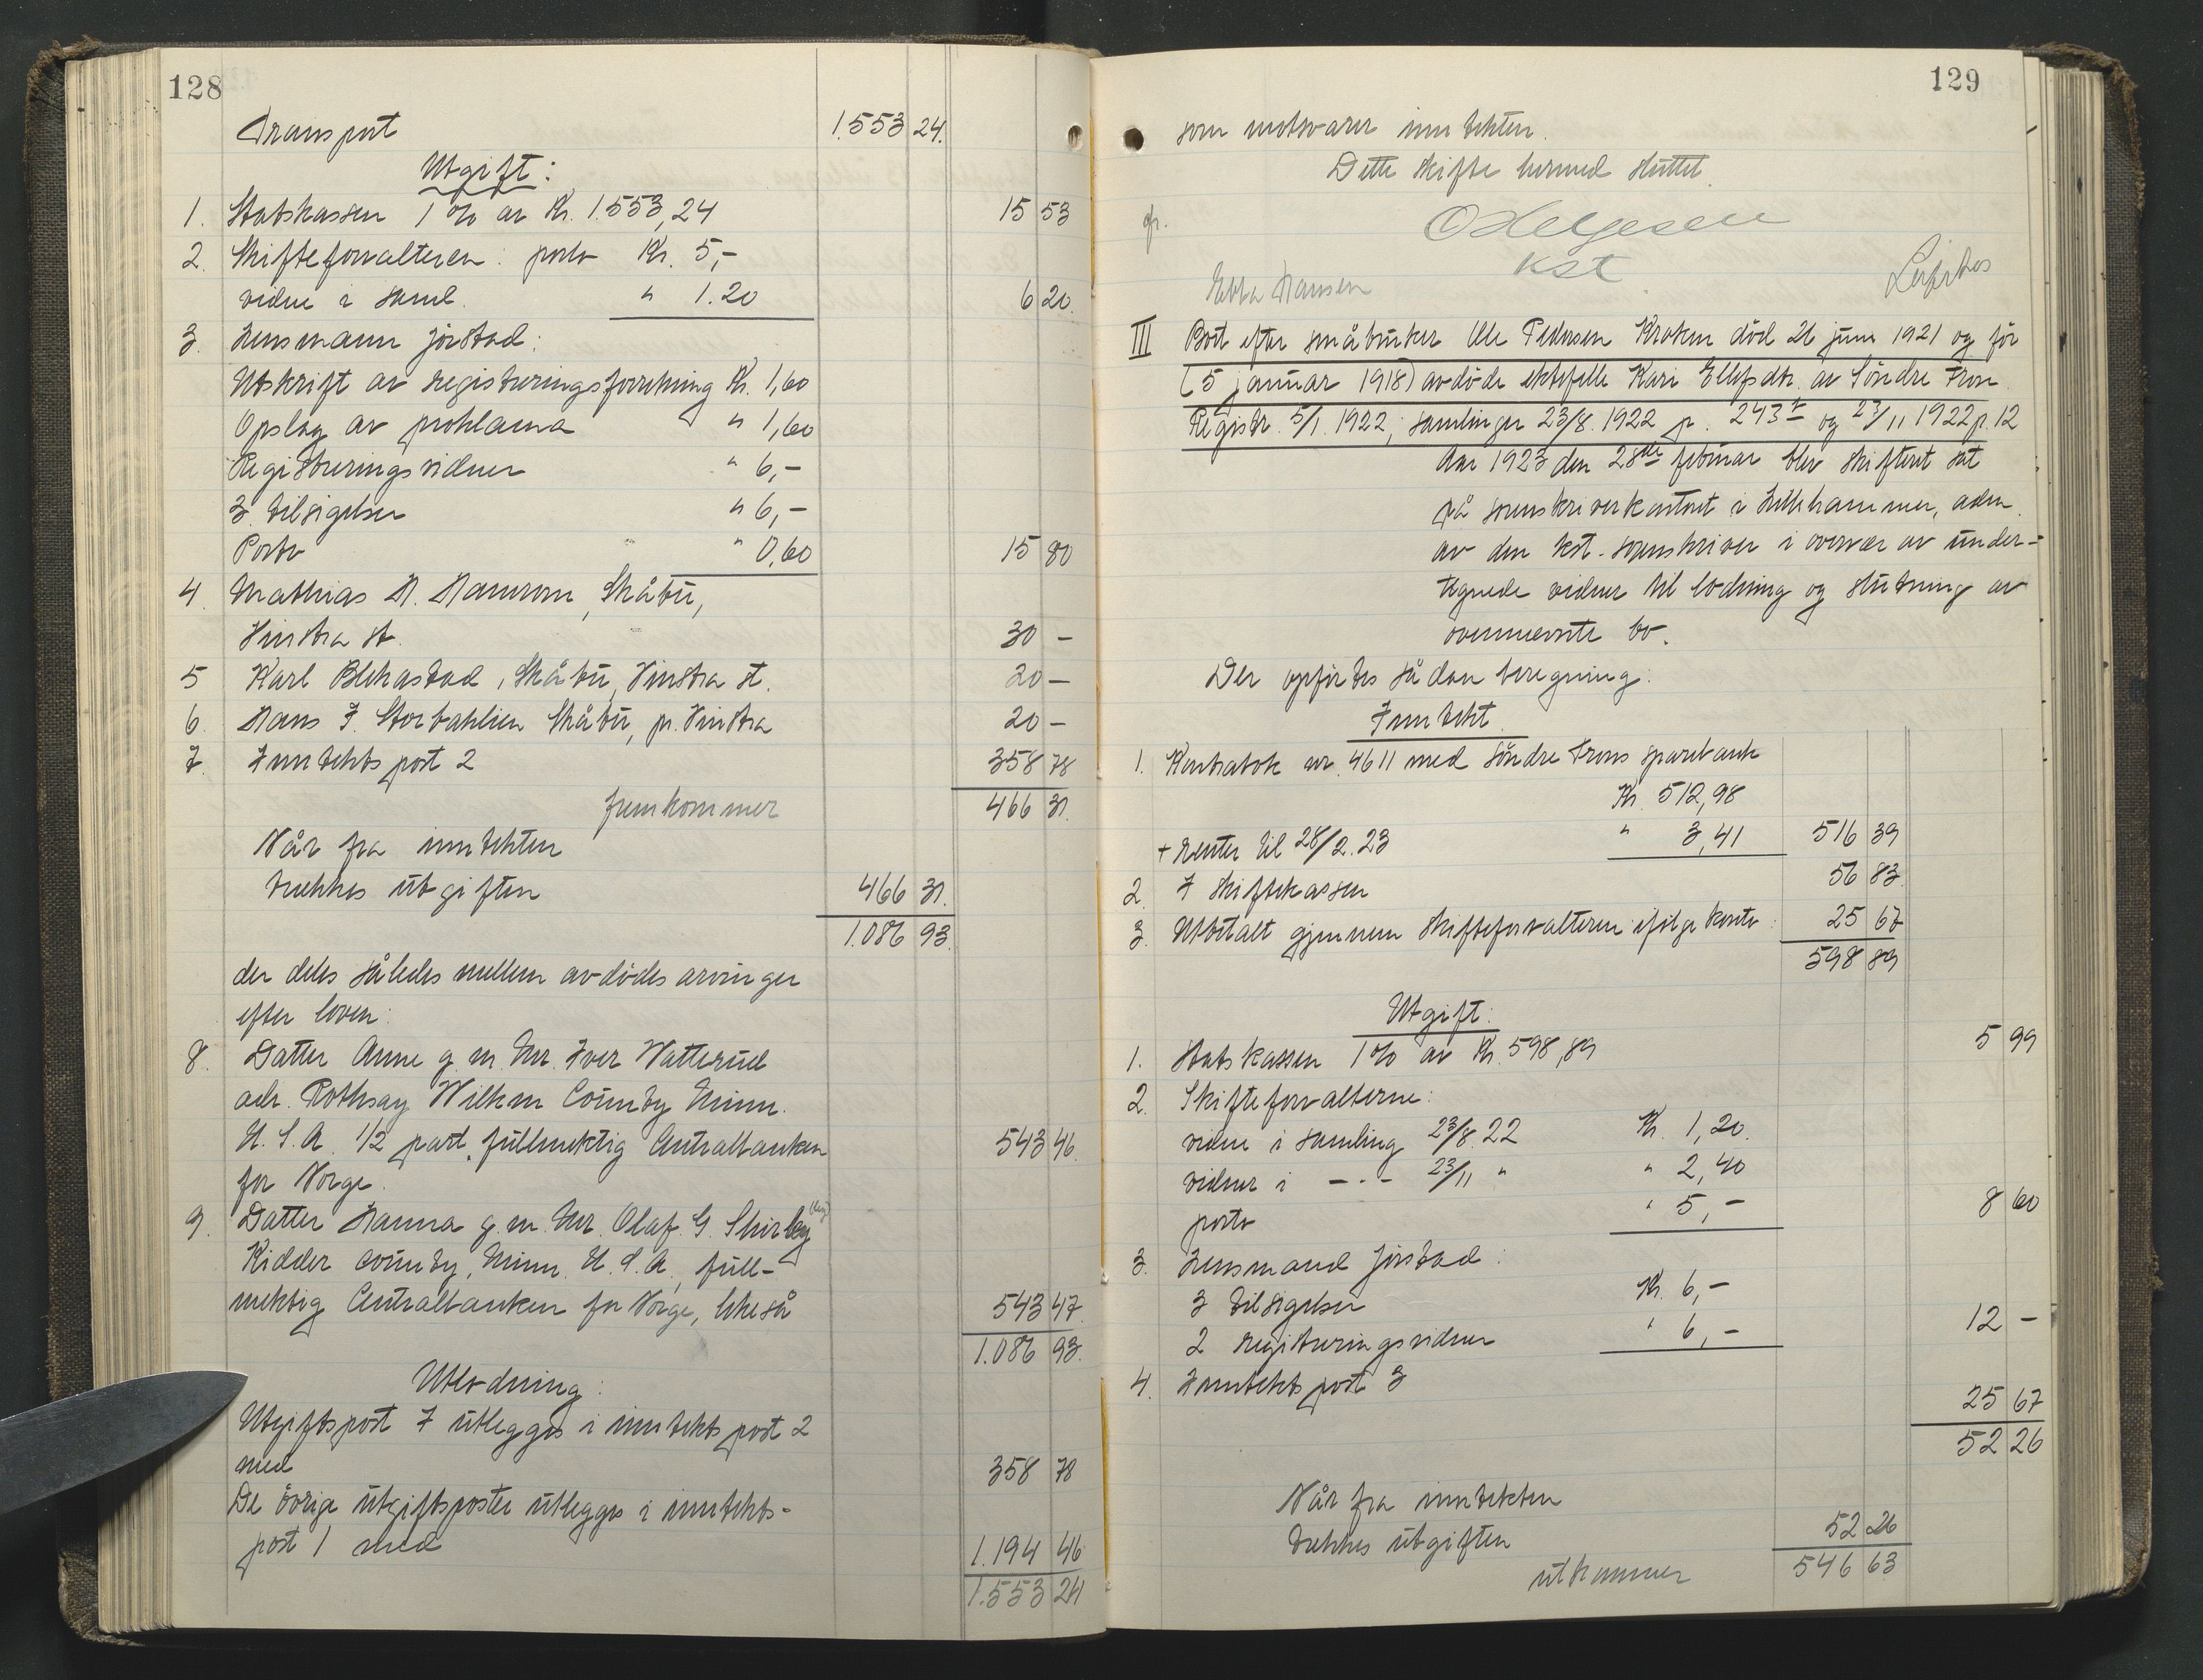 128
Transport 1.553 24.
Utgift:
1. Statskassen 1% av Kr. 1.553,24 15 53
2. Skifteforvalteren: porto Kr. 5,-
vidne i saml. " 1.20 6 20.
3. Lensmann Jörstad:
Utskrift av registreringsforretning Kr. 1,60
Opslag av proklama " 1,60
Registreringsvidner " 6,-
3 tilsigelser " 6,-
Porto " 0,60 15 80
4. Mathias H. Hamrom, Skåbu,
Vinstra st. 30 -
5 Karl Blekastad, Skåbu, Vinstra st. 20 -
6. Hans J. Storbahlien Skåbu, pr. Vinstra 20 -
7. Inntekts post 2 358 78
fremkommer 466 31.
Når fra inntekten
trekkes utgiften 466 31.
1.086 93.
der deles således mellem avdödes arvinger
efter loven:
8. Datter Anne g. m. Mr. Iver Watterud
adr. Rothsay Wilken County Minn.
U. S. A. 1/2 part, fullmektig Centralbanken
for Norge. 543 46.
9. Datter Hanna g. m. Mr. Olaf G. Skirley
Kidder county, Minn. U. S. A., full-
mektig Centralbanken for Norge, likeså 543 47.
1.086 93.
Utlodning:
Utgiftspost 7 utlegges i inntektspost 2
med 358 78
De övrige utgiftsposter utlegges i inntekts-
post 1 med 1.194 46
1.553 24
129
som motsvarer inntekten.
Dette skifte hermed sluttet.
O Helgesen
kst
Ebba Hansen
III Boet efter småbruker Ole Pedersen Kroken död 26 juni 1921 og for
(5 januar 1918) avdöde ektefelle Kari Ellefsdtr. av Söndre Fron
Registr. 5/1. 1922, samlinger 23/8. 1922 p. 243 og 23/11 1922 p. 12
Aar 1923 den 28de februar blev skifteret sat
på sorenskriverkontoret i Lillehammer, adm.
av den kst. sorenskriver i overvær av under-
tegnede vidner til lodning og slutning av
ovennevnte bo.
Der opförtes sådan beregning:
Inntekt.
1. Kontrabok nr. 4611 med Söndre Frons sparebank
Kr. 512,98
+ renter til 28/2. 23 " 3,41 516 39
2. I skiftekassen 56 83.
3. Utbetalt gjennem skifteforvalteren ifölge konto: 25 67
598 89
Utgift:
1. Statskassen 1% av Kr. 598,89 5 99
2. Skifteforvalterne:
vidne i samling 23/8. 22 Kr. 1,20.
vidner i -"- 23/11 " " 2,40
porto " 5,- 8 60
3. Lensmand Jörstad:
3 tilsigelser Kr. 6,-
2 registreringsvidner " 6,- 12 -
4. Inntekts post 3 25 67
52 26
Når fra inntekten
trekkes utgiften 52 26
utkommer 546 63